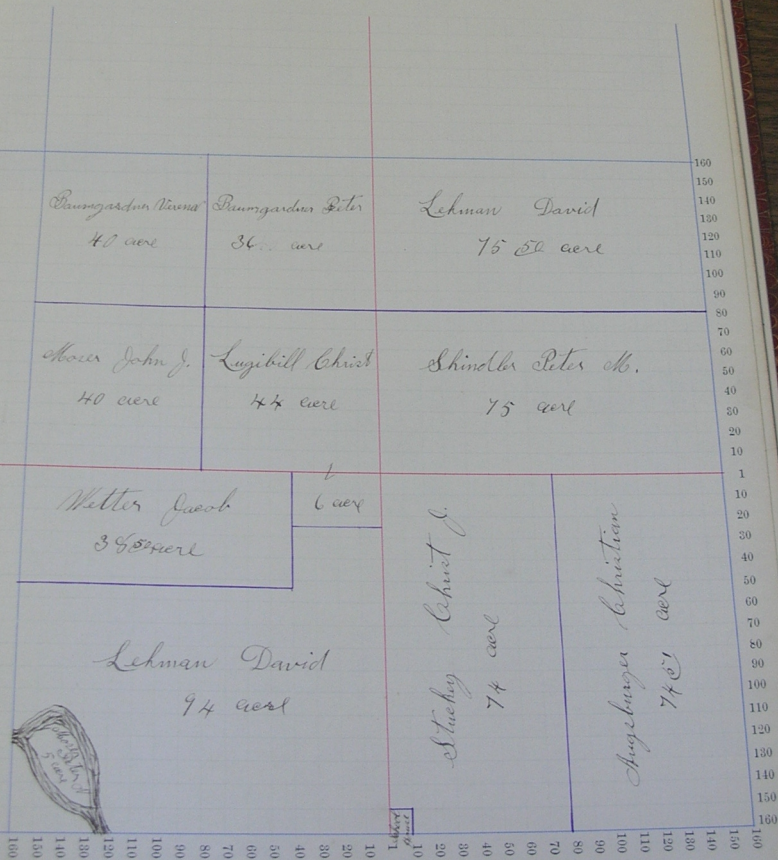 Baumgardner Verena
40 acre
Baumgardner Peter
36 acre
Lehman David
75 50 acre
Moser John J.
40 acre
Lugibill Christ
44 acre
Shindler Peter M.
75 acre
Vetter Jacob
38 50 acre
6 acre
Lehman David
94 acre
5 acre
Stuckey Christ J.
74 acre
Augsburger Christian
74 acre
160
150
140
130
120
110
100
90
80
70
60
50
40
30
20
10
1
10
20
30
40
50
60
70
80
90
100
110
120
130
140
150
160
160 150 140 130 120 110 100 90 80 70 60 50 40 30 20 10 1 10 20 30 40 50 60 70 80 90 100 110 120 130 140 150 160